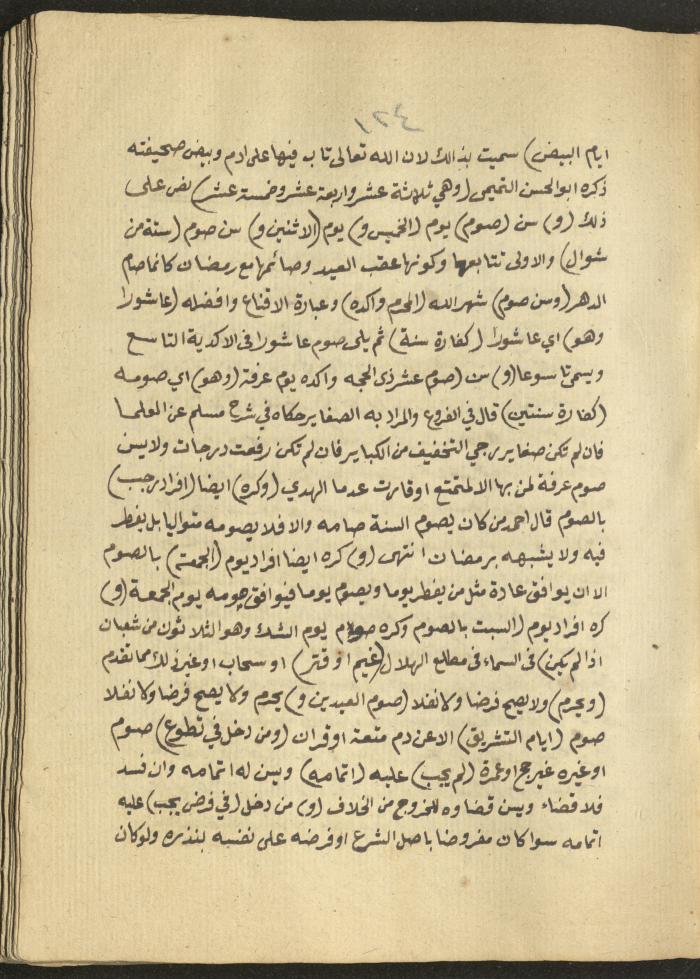 ١٢٤
ايام البيض) سميت بذالك لان الله تعالى تاب فيها على ادم وبيض صحيفته
ذكره ابو الحسن التميمى (وهي ثلاثة عشر واربعة عشر وخمسة عشر) نص على
ذلك (و) سن (صوم) يوم (الخميس و) يوم (الاثنين و) سن صوم (ستة من
شوال) والاولى تتابعها وكونها عقب العيد وصائمها مع رمضان كانما صام
الدهر (وسن صوم) شهر الله (المحرم واكده) وعبارة الاقناع وافضله (عاشورا
وهو) اي عاشورا (كفارة سنة) ثم يلى صوم عاشورا فى الاكدية التاسع
ويسمى تاسوعا (و) سن (صوم عشر ذى الحجه واكده يوم عرفة (وهو) اي صومه
(كفارة سنتين) قال في الفروع والمراد به الصغاير حكاه في شرح مسلم عن العلما
فان لم تكن صغاير رجي التخفيف من الكباير فان لم تكن رفعت درجات ولا يسن
صوم عرفة لمن بها الا لمتمتع او قارن عدما الهدي (وكره) ايضا (افراد رجب)
بالصوم قال احمد من كان يصوم السنة صامه والا فلا يصومه متواليا بل يفطر
فيه ولا يشبهه برمضان انتهى (و) كره ايضا افراد يوم (الجمعة) بالصوم
الا ان يوافق عادة مثل من يفطر يوما ويصوم يوما فيوافق صومه يوم الجمعة (و)
كره افراد يوم (السبت بالصوم وكره صوم يوم الشك وهو الثلاثون من شعبان
اذا لم يكن) فى السماء فى مطلع الهلال (غيم او قتر) او سحاب او غير ذلك مما تقدم
(ويحرم) ولا يصح فرضا ولا نفلا (صوم العيدين و) يحرم ولا يصح فرضا ولا نفلا
صوم (ايام التشريق) الا عن دم متعة او قران (ومن دخل في تطوع) صوم
او غيره غير حج او عمرة (لم يجب) عليه (اتمامه) ويسن له اتمامه وان فسد
فلا قضاء ويسن قضاوه للخروج من الخلاف (و) من دخل (في فرض يجب) عليه
اتمامه سوا كان مفروضا باصل الشرع او فرضه على نفسه بنذره ولو كان